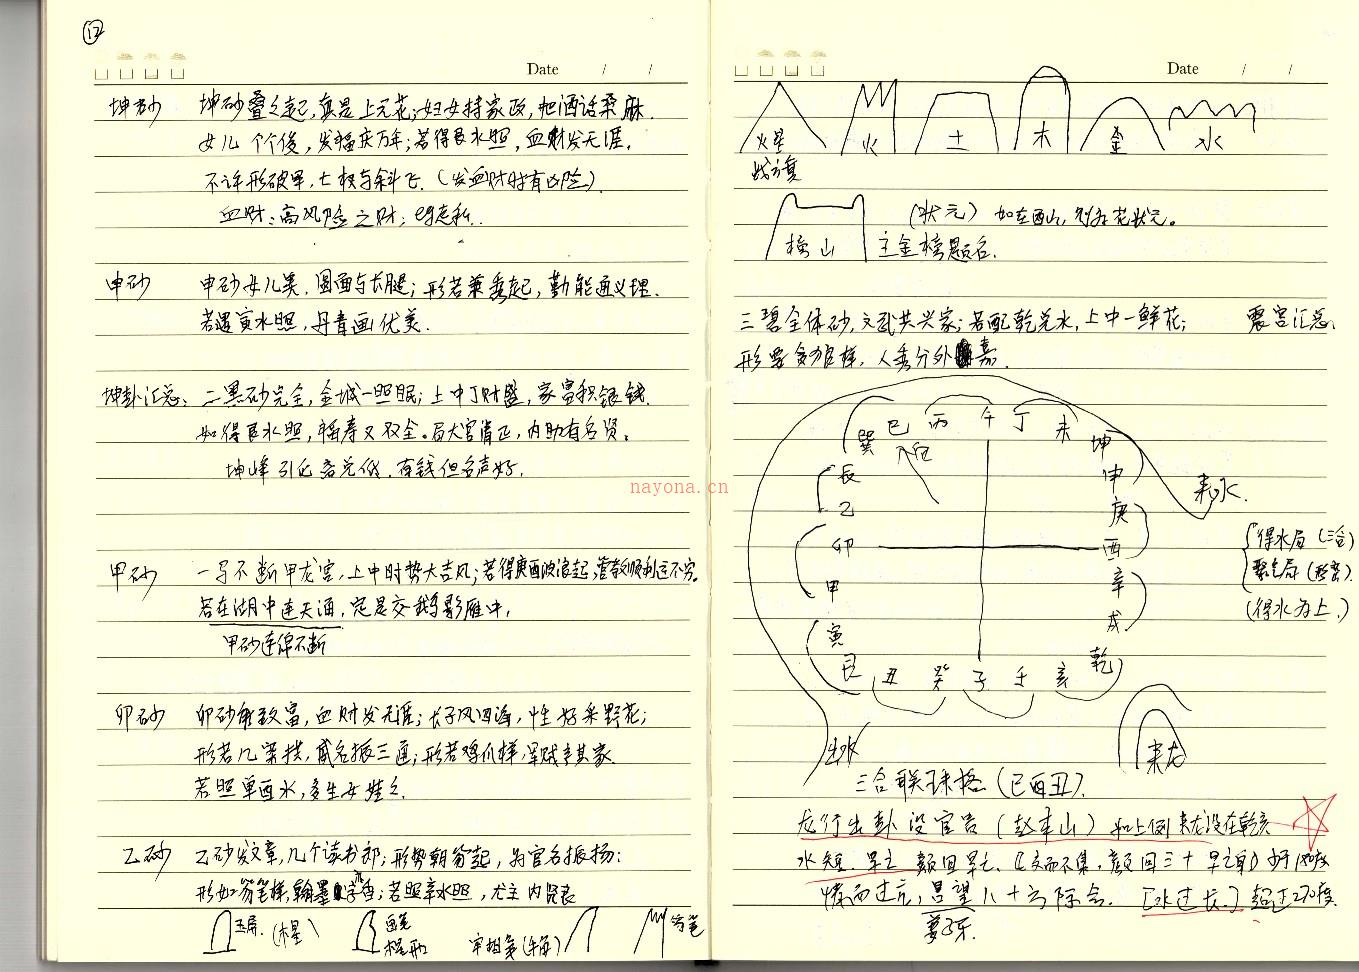 17
Date / /
坤砂 坤砂叠叠起,真是上元花;妇女持家政,把酒话桑麻.
女儿个个俊,发福庆万年;若得艮水照,血财发无涯.
不许形破军,七杀与斜飞.(发血财时有凶险)
血财:高风险之财,
申砂 申砂女儿美,圆面与长腿;形若兼秀起,勤能通义理.
若遇寅水照,丹青画优美.
坤卦汇总: 二黑砂完全,金城一照眠;上中丁财盛,家富积银钱.
如得艮水照,福寿又双全。局大宫清正,内助有名贤。
坤峰 有钱但名声好.
甲砂 一字不断甲龙宫,上中时势大吉风;若得庚酉波浪起,管教顺利运不穷.
若在湖中连天涌,定是交鹅影雁中,
甲砂连绵不断
卯砂 卯砂能致富,血财发无涯;长子风四海,性好采野花;
形若几案拱,威名振三通;形若鸡爪样,军贼
若照单酉水,多生女娃々.
乙砂 乙砂发文章,几个读书郎;形势朝笏起,为官名振扬;
形如笏笔样,翰墨字香;若照辛水照,尤主内贤良
玉屏.(木星)
画笔
木星形
笏笔
Date / /
火星 火 土 木 金 水
战旗
榜山
(状元) 如在西山,则为花状元。
主金榜题名.
三碧全体砂,文武共兴家;若配乾兑水,上中一鲜花; 震宫汇总
形要 人秀分外嘉.
巽 巳 丙 午 丁 未 坤 申 庚 酉 辛 戌 乾 亥 壬 子 癸 丑 艮 寅 甲 卯 乙 辰
入首
来水.
得水局(三合)
聚气局(形峦)
(得水为上.)
出水
来龙
三合联珠格(巳酉丑).
龙行出卦没官贵(赵本山)如上例来龙没在乾亥
水短早亡颜回早亡.(文而不集,颜回三十早亡身)少于180度
情而过亢,吕望八十方际会. [水过长.] 超过270度.
姜子牙.
nayona.cn